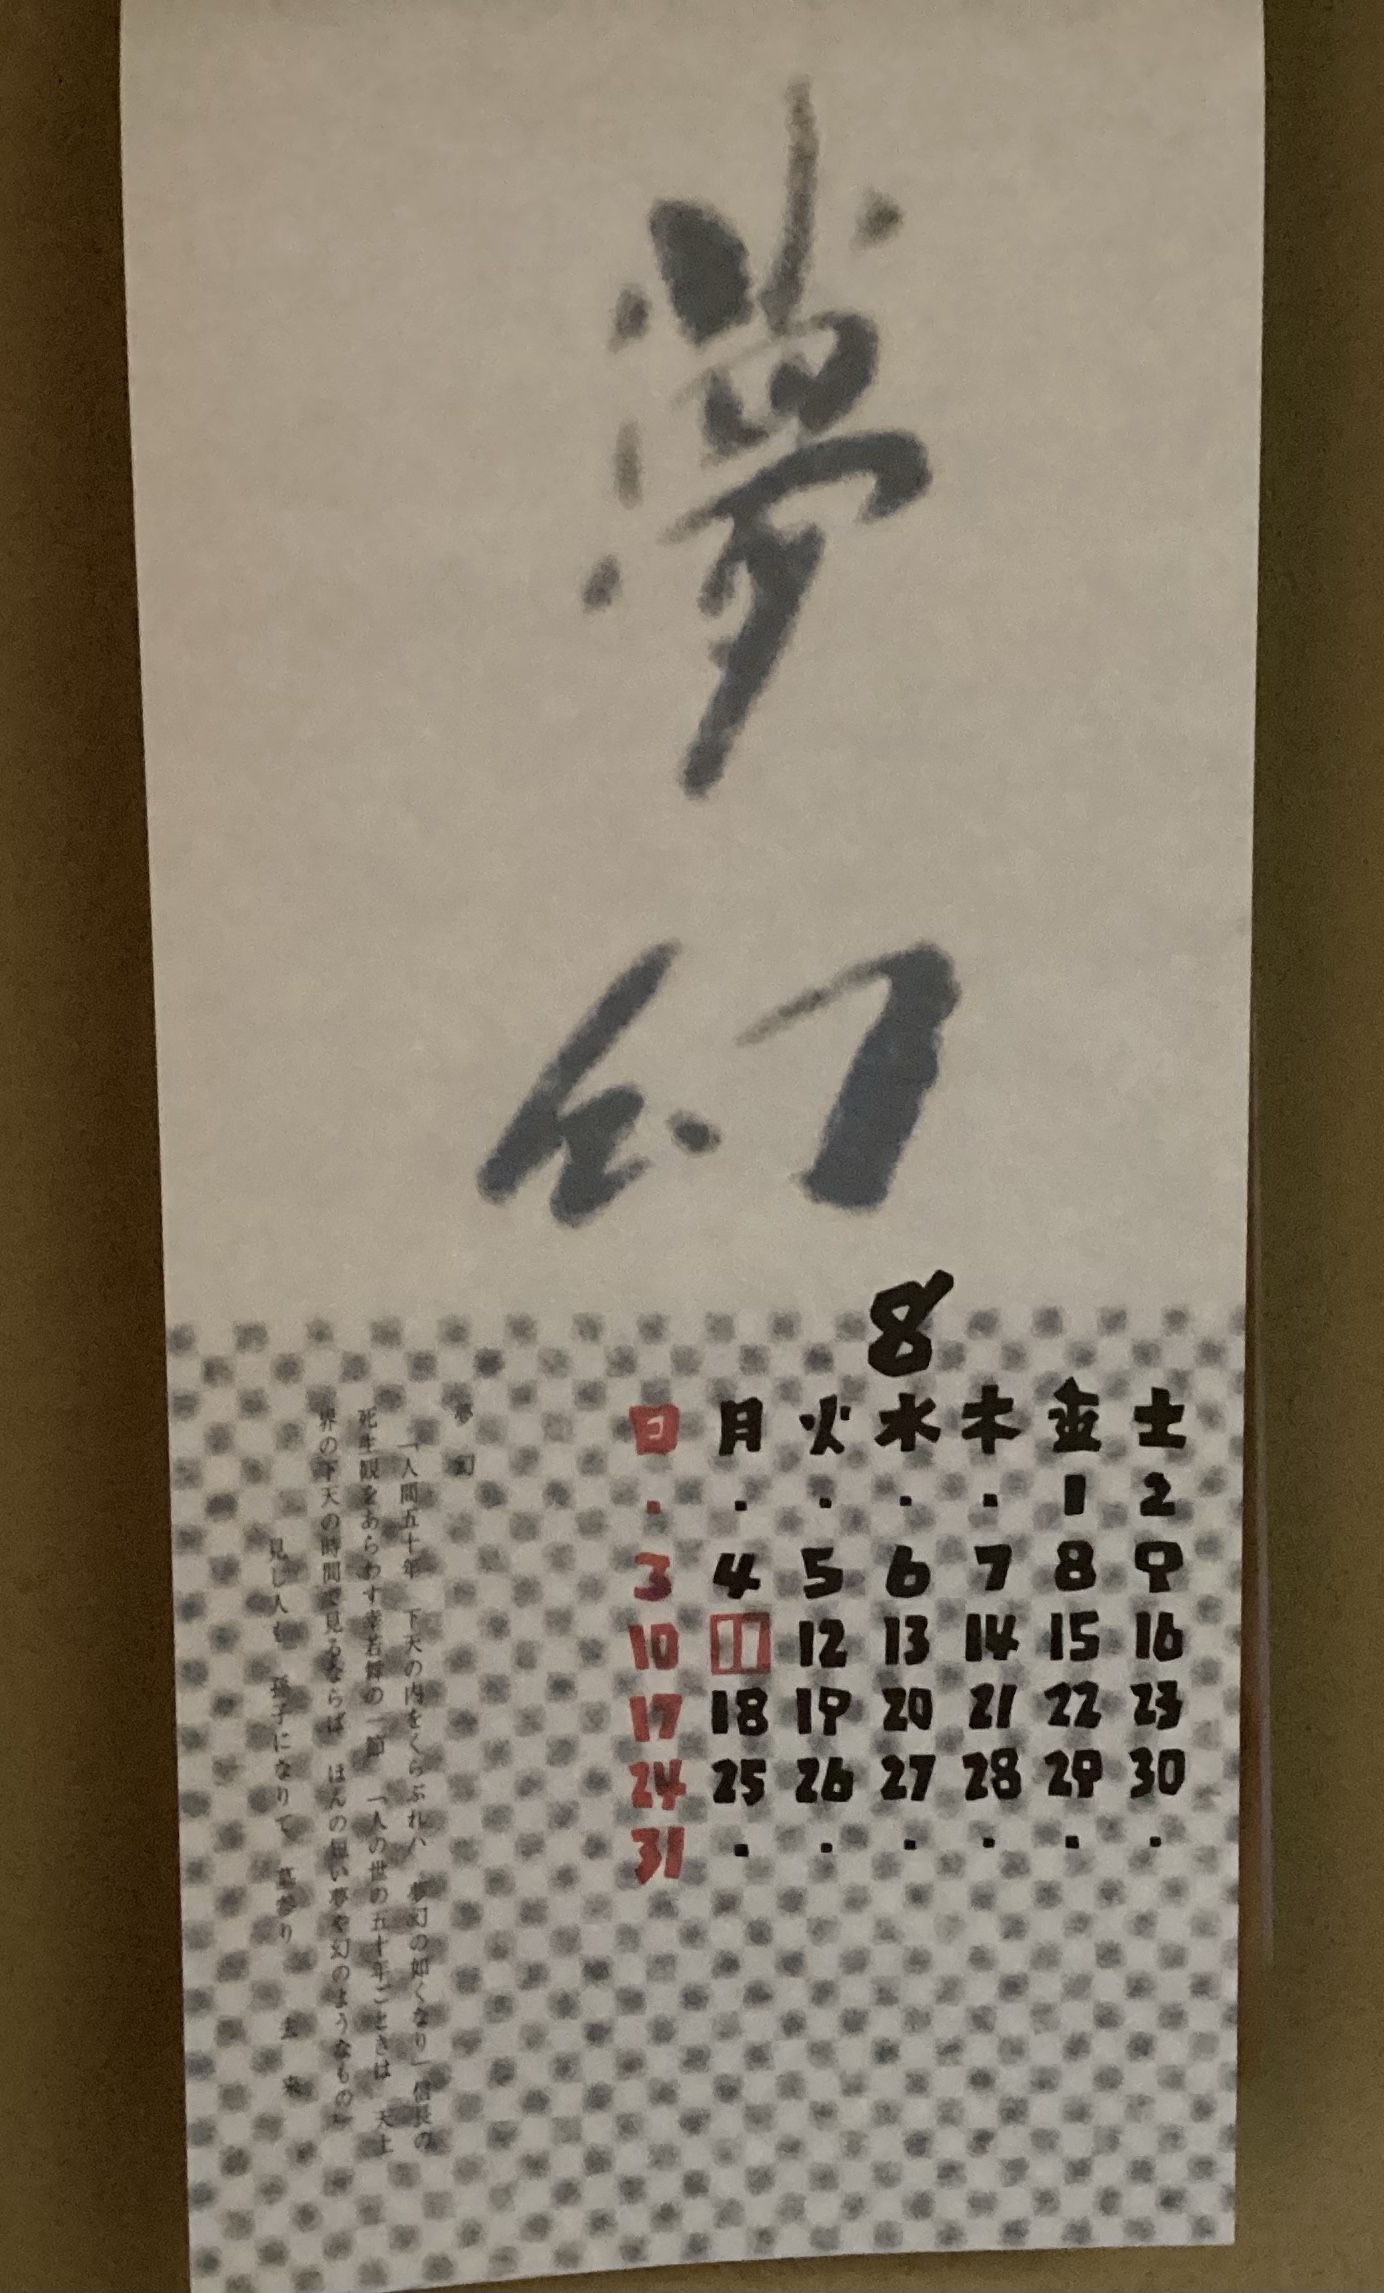 夢
幻
8
日 月 火 水 木 金 土
・ ・ ・ ・ ・ 1 2
3 4 5 6 7 8 9
10 11 12 13 14 15 16
17 18 19 20 21 22 23
24 25 26 27 28 29 30
31 ・ ・ ・ ・ ・ ・
夢 幻
「人間五十年 下天の内をくらぶれハ 夢幻の如くなり」信長の
死生観をあらわす幸若舞の一節 「人の世の五十年ごときは 天上
界の下天の時間で見るならば ほんの短い夢や幻のようなもの」
見し人も 孫子になりて 墓参り 去 来